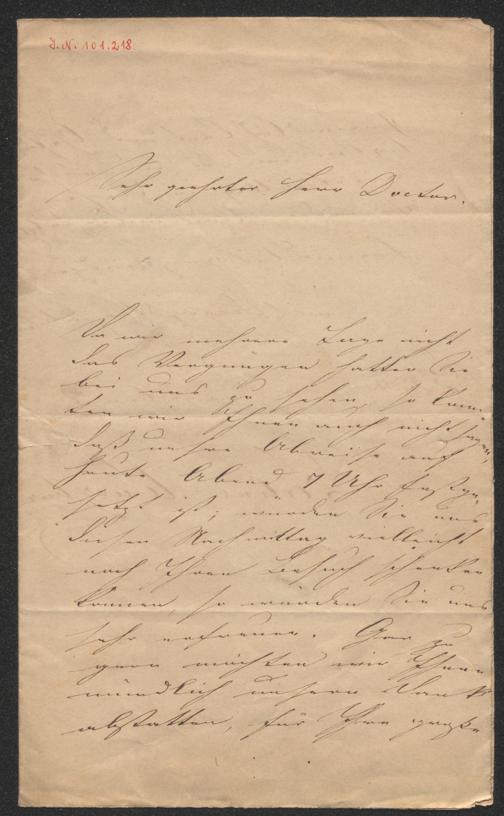 J.N. 101.218
Sehr geehrter Herr Doctor.
Da wir mehrere Tage nicht
das Vergnügen hatten Sie
bei uns zu sehen, so konn-
ten wir Ihnen auch nicht sagen,
daß unsere Abreise auf
heute Abend 7 Uhr festge-
setzt ist; würden Sie uns
diesen Nachmittag vielleicht
noch Ihren Besuch schenken
können, so würden Sie uns
sehr erfreuen. Gar zu
gern möchten wir Ihnen
mündlich unsern Dank
abstatten, für Ihre große